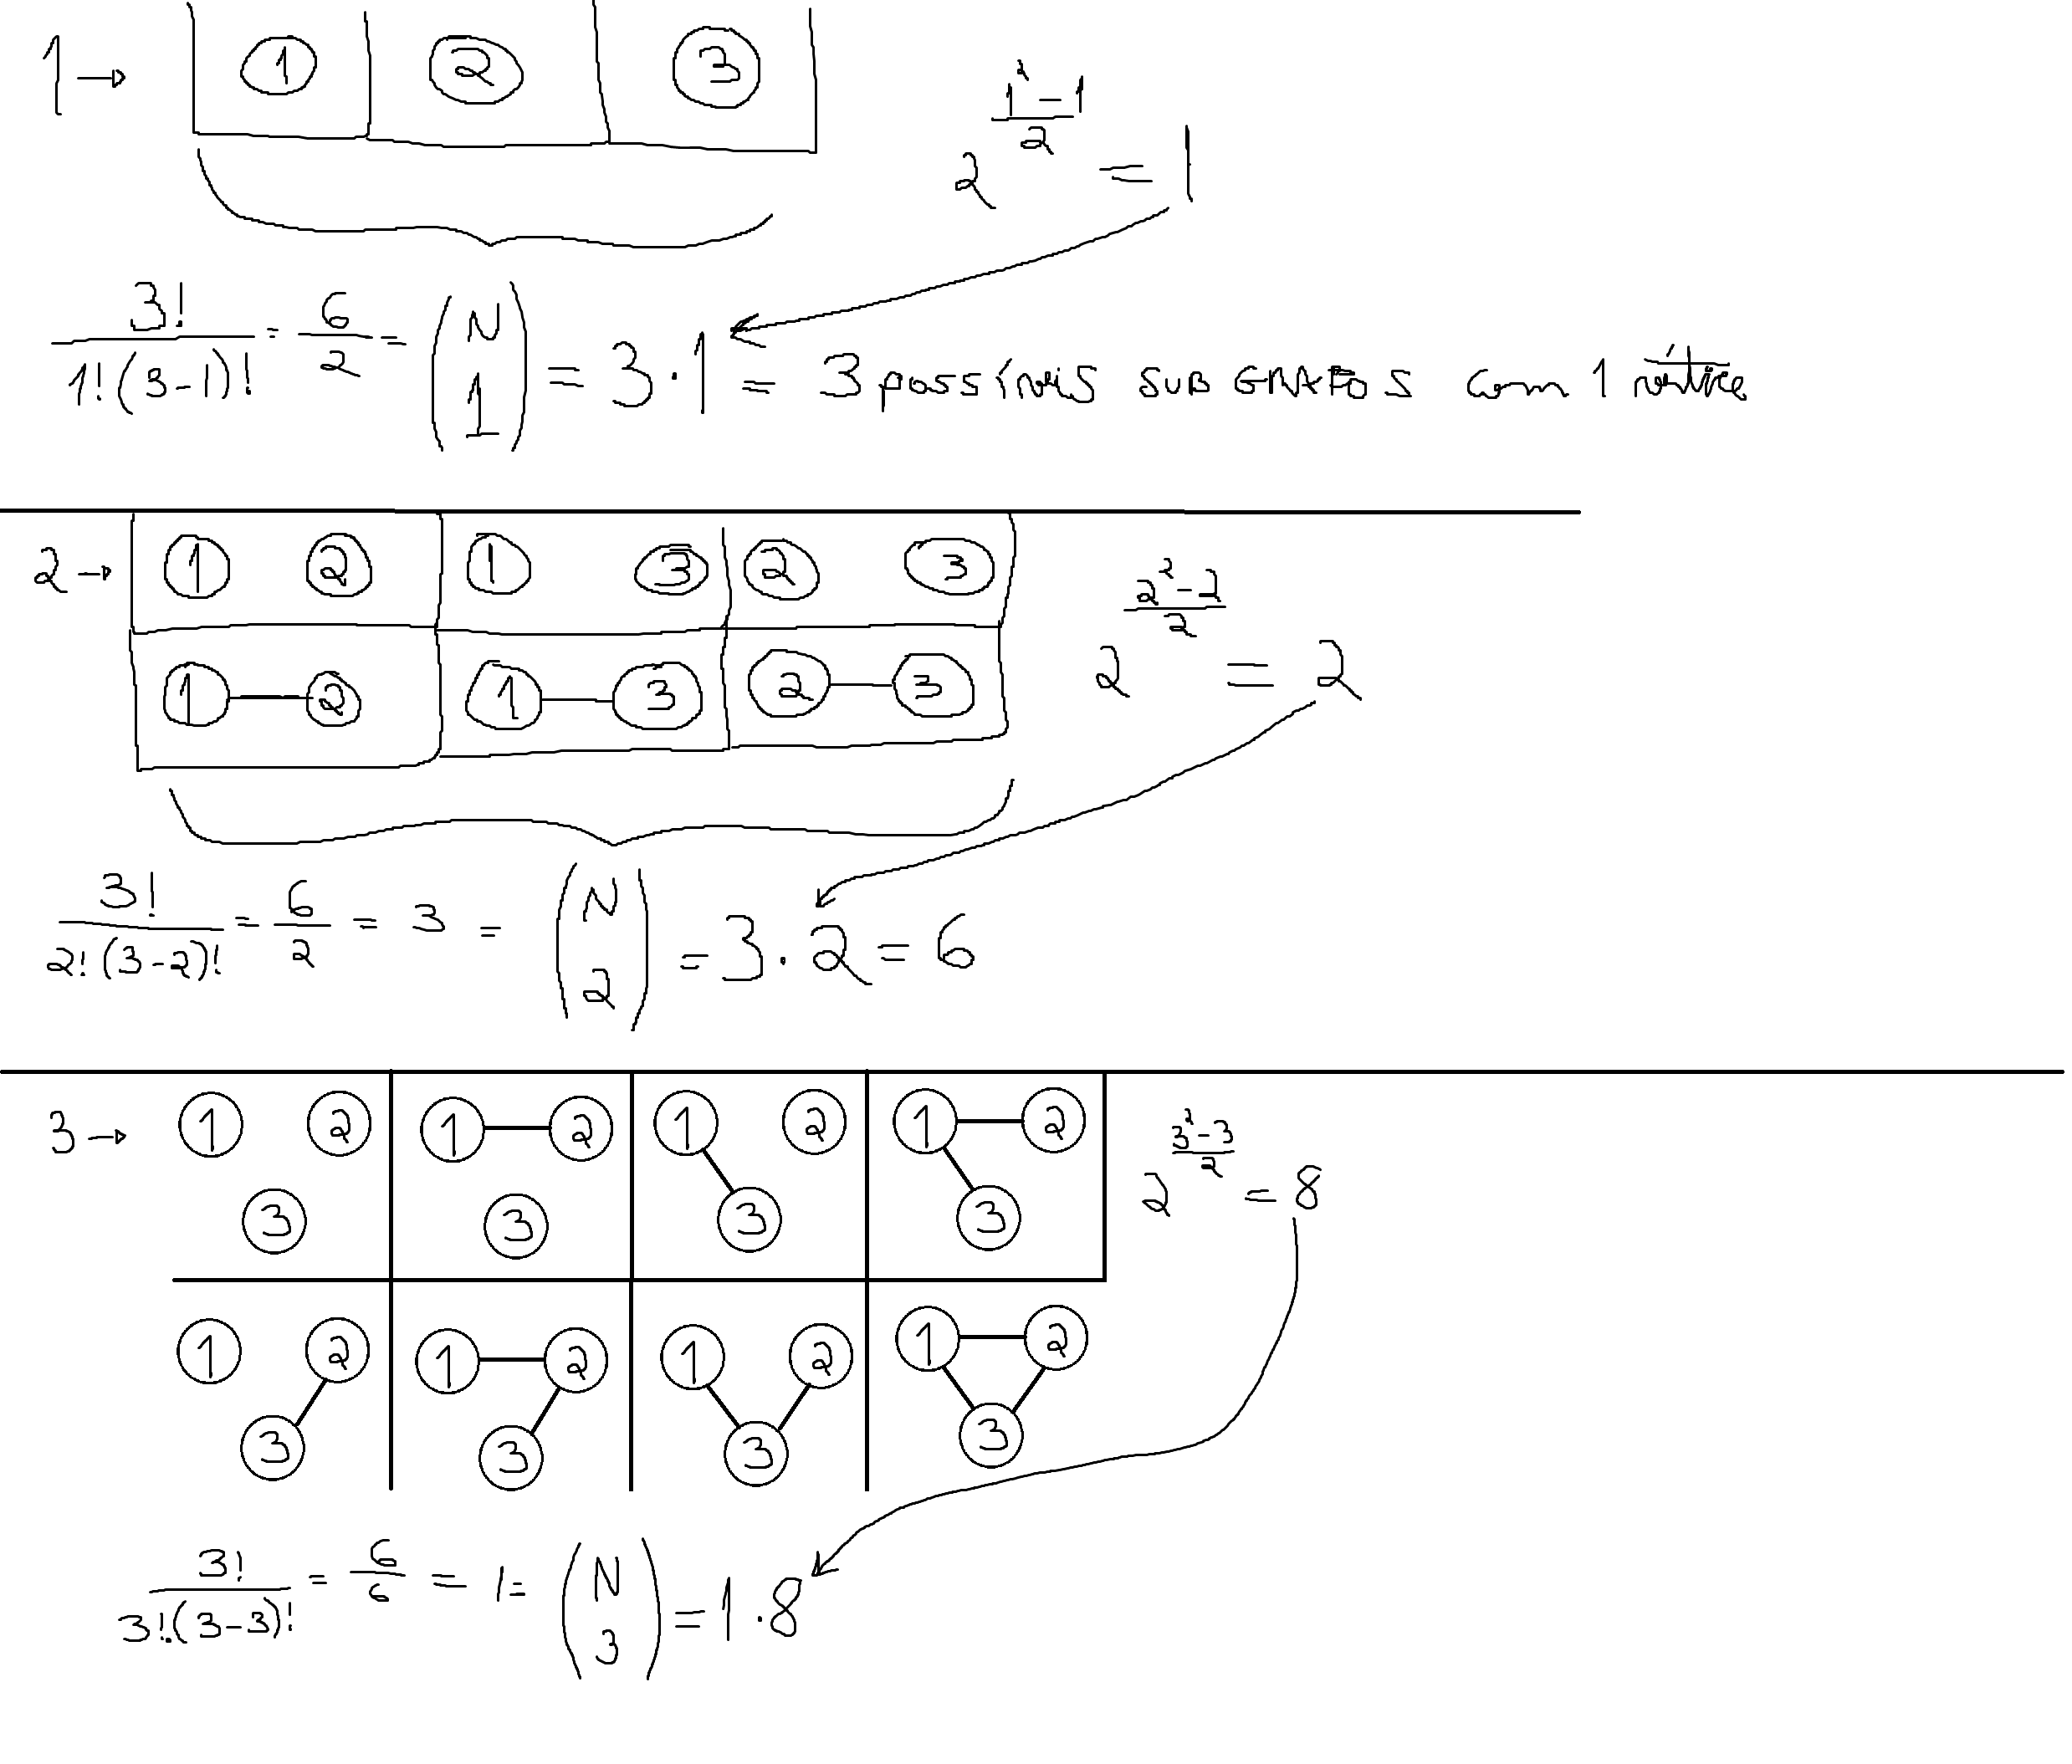 1 → ① ② ③
2^((1²-1)/2) = 1
3!/(1!(3-1)!) = 6/2 = (N 1) = 3·1 = 3 possíveis SUBGRAFOS com 1 vértice
2 → ① ② ① ③ ② ③
①—② ①—③ ②—③
2^((2²-2)/2) = 2
3!/(2!(3-2)!) = 6/2 = 3 = (N 2) = 3·2 = 6
3 → ① ② ①—② ① ② ①—②
③ ③ ③ ③
2^((3²-3)/2) = 8
① ② ①—② ① ② ①—②
③ ③ ③ ③
3!/(3!(3-3)!) = 6/6 = 1 = (N 3) = 1·8